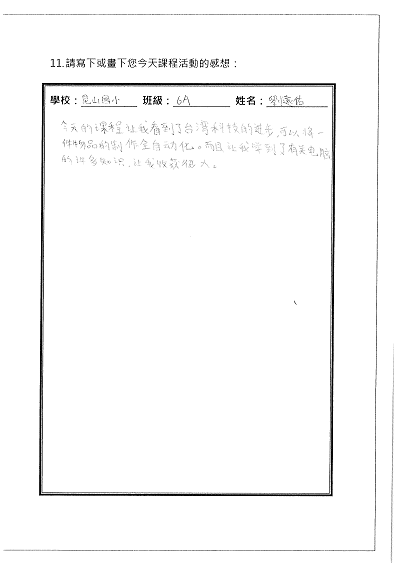 11.請寫下或畫下您今天課程活動的感想：
學校：龜山國小 班級：6A 姓名：劉
今天的課程讓我看到了台灣科技的進步,可以將一
件物品的製作全自動化。而且讓我學到了有關電腦
的許多知識,讓我收穫很大。